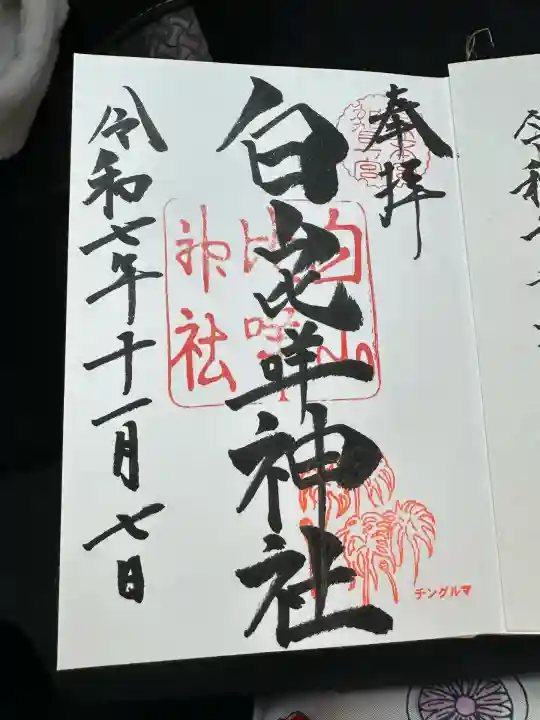 奉拝
白山比咩神社
白山
比咩
神社
チングルマ
令和七年十一月七日